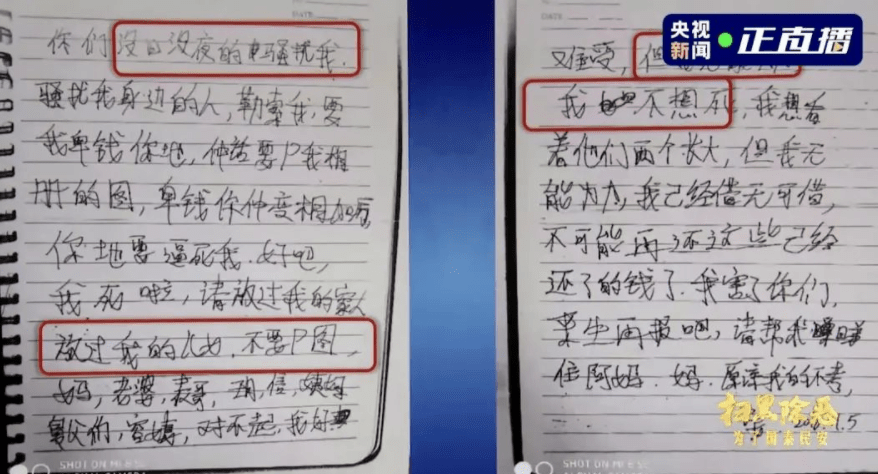 DATE
你们没日没夜的骚扰我.
骚扰我身边的人,勒索我,要
我卑钱你地,仲话要P我相
册的图,卑钱你仲变相加
你地要逼死我.好吧,
我死啦,请放过我的家人
放过我的儿女,不要P图,
妈,老婆,表哥,
对不起,我好
SHOT ON MI
央视
新闻
正直播
难受,但
我 不想死,我想看
着他们两个长大,但我无
能为力,我已经借无可借,
不可能再还这些已经
还了的钱了.我害了你们,
来生再报吧,请帮我
住阿妈.妈.原谅我的不孝,
扫黑除恶
为了国泰民安
SHOT ON MI